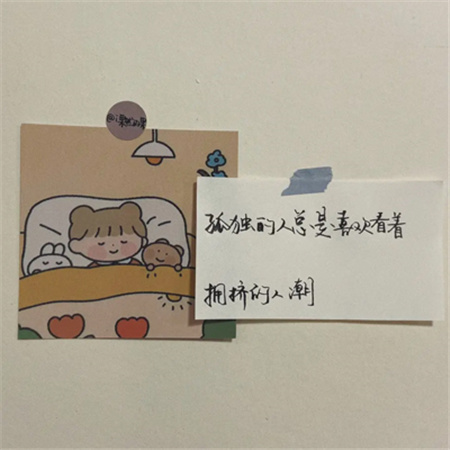 孤独的人总是喜欢看着
拥挤的人潮